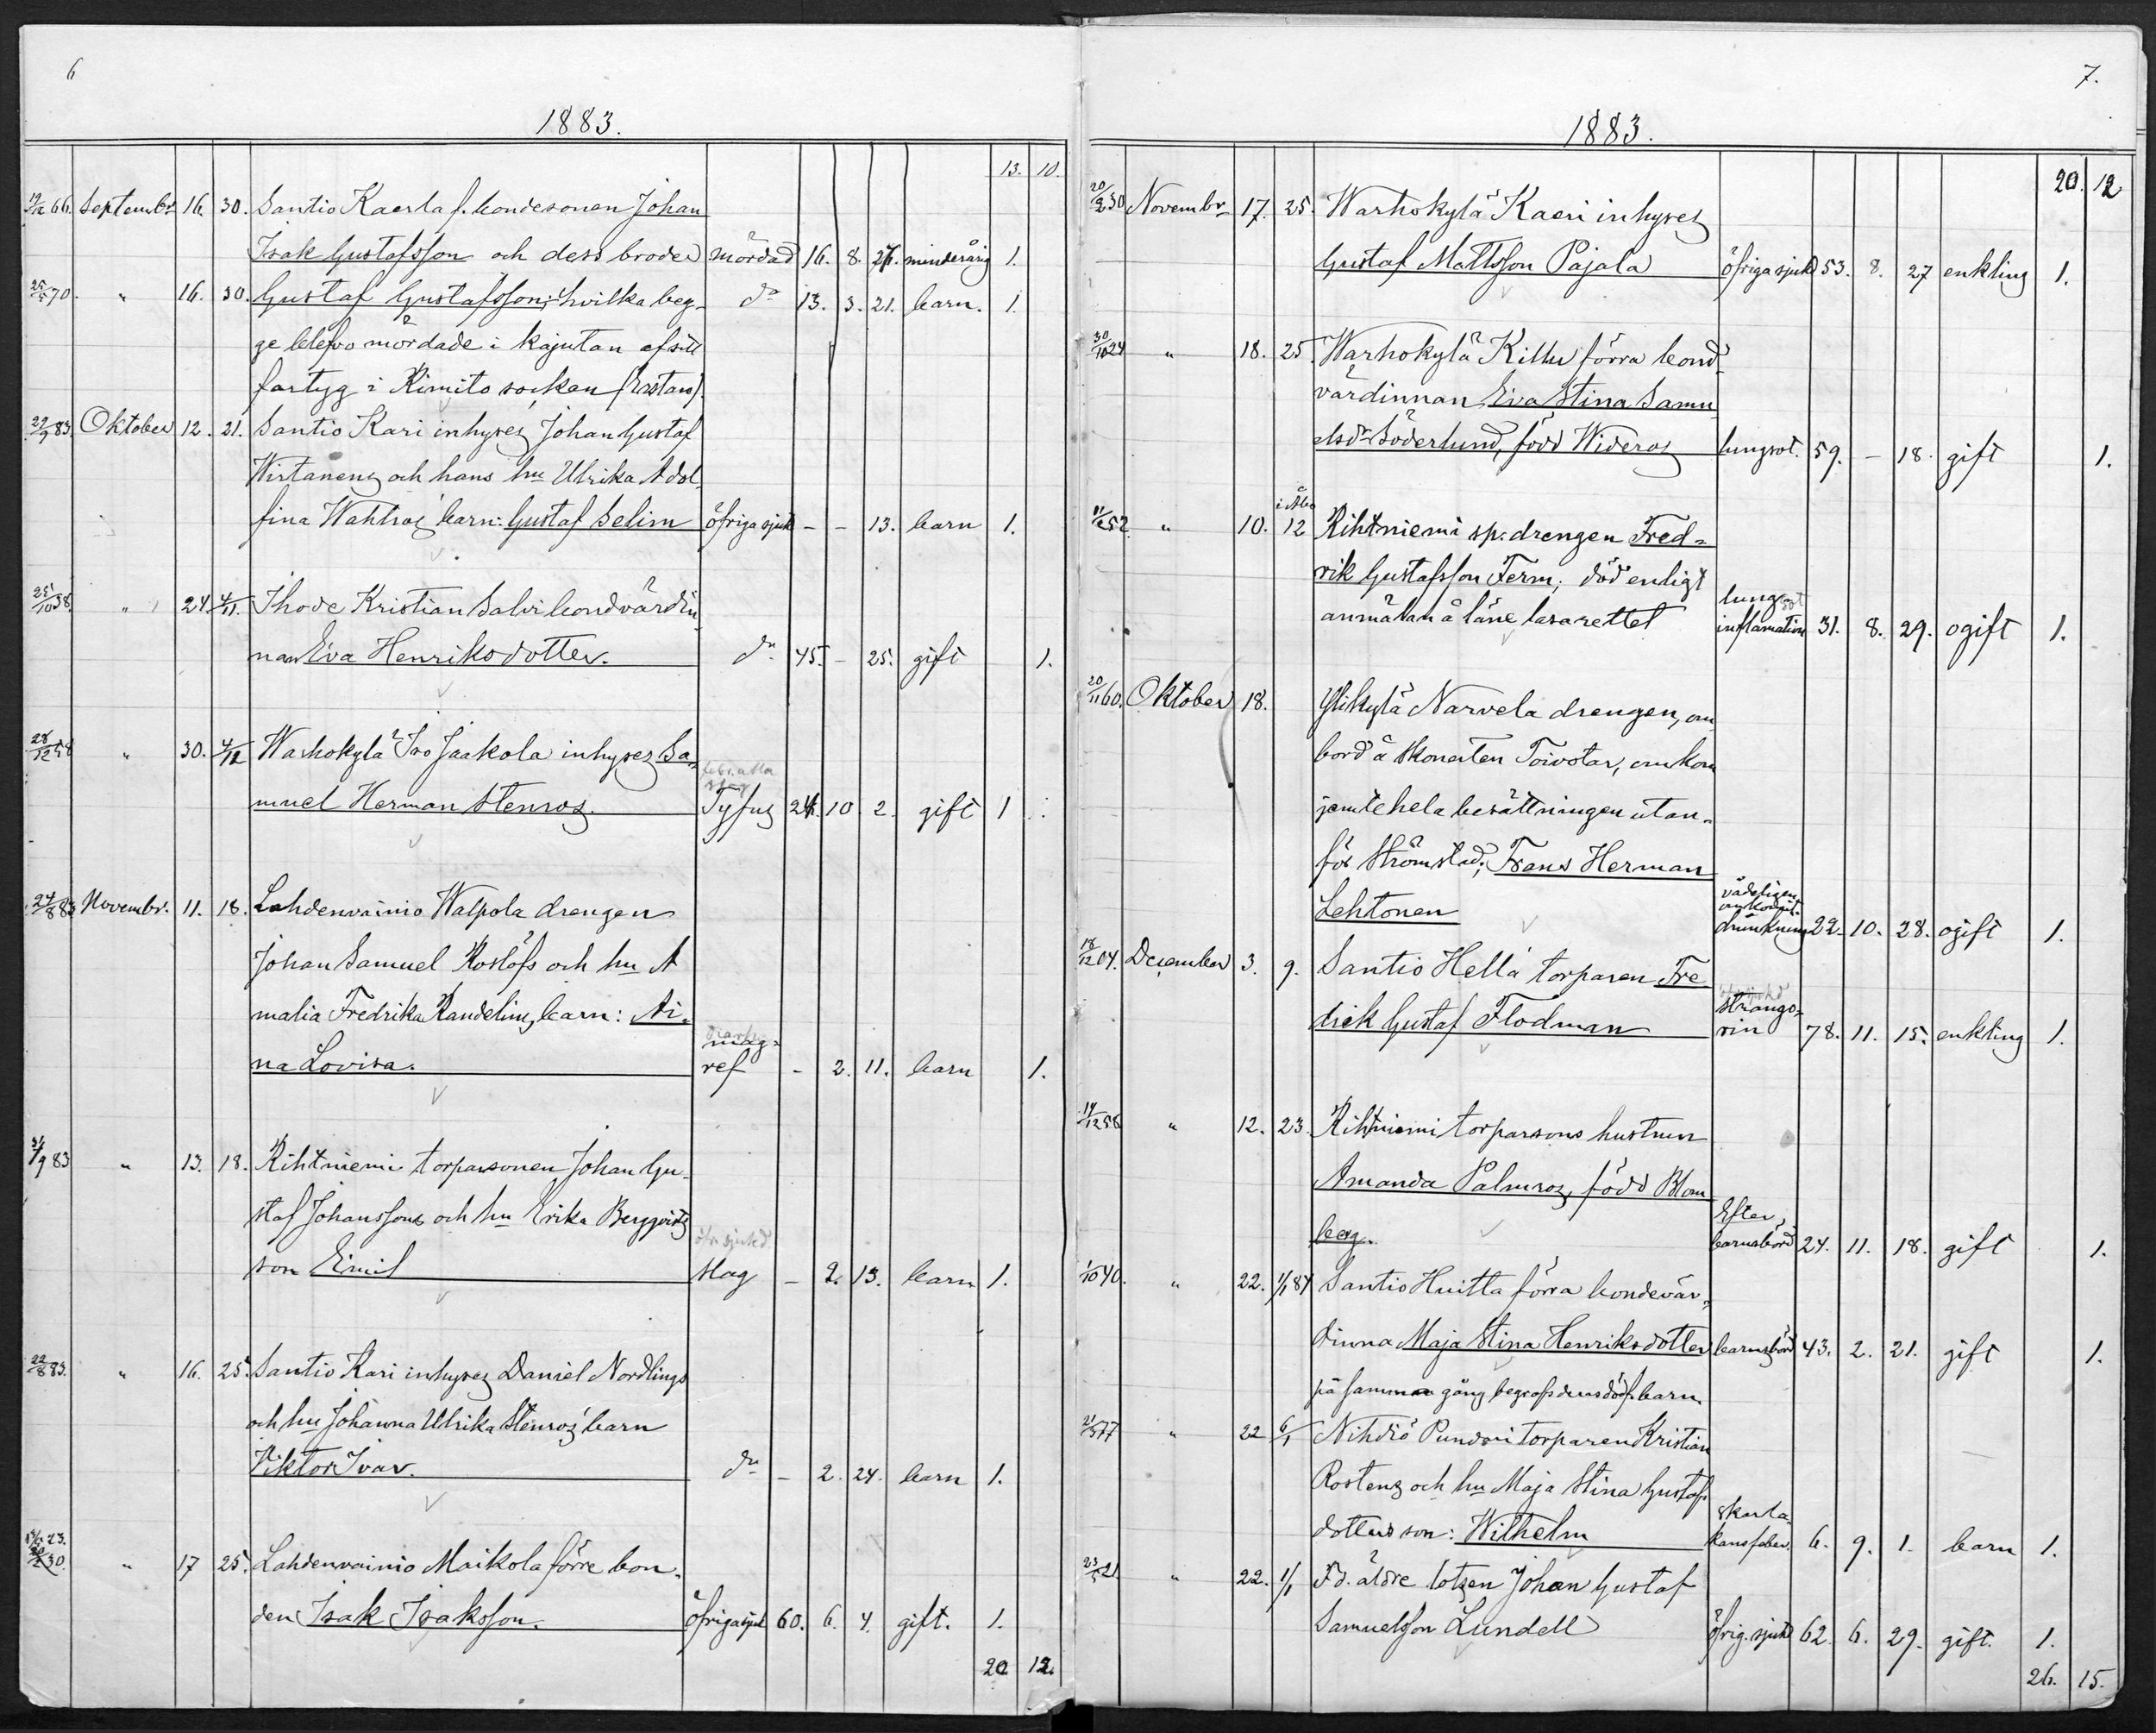 6
1883.
13. 10.
19/12 66. Septembr 16. 30. Santio Kaerla f. bondesonen Johan
Isak Gustafsson och dess broder mördad 16. 8. 27. minderårig 1.
25/5 70. " 16. 30. Gustaf Gustafsson; hvilka beg- do 13. 3. 21. barn. 1.
ge blefvo mördade i kajutan af sitt
fartyg i Rimito socken
29/9 83. Oktober 12. 21. Santio Kari inhyses Johan Gustaf
Wirtanens och hans hu Ulrika Adol
fina Wahlros barn: Gustaf Selim öfriga sjuk - - 13. barn 1.
25/10 38. " 24. 4/11. Ihode Kristian Salvi bondvärdin
nan Eva Henriksdotter. do 45. - 25. gift 1.
28/12 58 " 30. 4/12 Warhokylä Iso Jaakola inhyses Sa-
muel Herman Stenros. Tyfus 24. 10 2. gift 1
24/8 83 Novembr. 11. 18. Lahdenvainio Walpola drengen
Johan Samuel Roslöfs och hu A
malia Fredrika Randelins barn: Ai-
mag-
na Lovisa. ref - 2. 11. barn 1.
31/9 83 " 13. 18. Rihtniemi torparsonen Johan Gu-
staf Johanssons och hu Erika Bergqvists
öfr. sjukd
son Emil slag - 2. 13. barn 1.
22/8 83. " 16. 25. Santio Kari inhyses Daniel Nordlings
och hu Johanna Ulrika Stenros' barn
Viktor Ivar. do - 2. 24. barn 1.
" 17 25. Lahdenvainio Maikola förre bon-
den Isak Isaksson. öfriga sjuk 60. 6. 4. gift. 1.
20 12.
7.
1883.
20. 12
20/2 30 Novembr 17. 25. Warhokylä Kaeri inhyses
Gustaf Mattsson Pajala öfriga sjukd 53. 8. 27 enkling 1.
30/10 24 " 18. 25. Warhokylä Killu förra bond-
värdinnan Eva Stina Samu
elsdr Söderlund, född Wideros lungsot. 59. - 18. gift 1.
i Åbo
11/2 52 " 10. 12 Rihtniemi sp. drengen Fred-
rik Gustafsson Ferm, död enligt
lung-
anmälan å läns lasarettet inflamation 31. 8. 29. ogift 1.
20/11 60. Oktober 18. Ylikylä Narvela drengen, om
bord å skonerten Toivotar, omkom
jemte hela besättningen utan-
för Strömstad; Frans Herman
vådligen
omkomst
Lehtonen drunkning 22. 10. 28. ogift 1.
18/12 04. December 3. 9. Santio Hellä torparen Fre
strangu-
drik Gustaf Flodman rin 78. 11. 15. enkling 1.
14/12 58 " 12. 23. Rihtniemi torparsons hustrun
Amanda Palmros, född Blom
Efter
berg. barnsbörd 24. 11. 18. gift 1.
1/10 40. " 22. 1/1 84 Santio Huitta förra bondevär-
dinna Maja Stina Henriksdotter barnsbörd 43. 2. 21. gift 1.
på samma gång begrofs dess dödf. barn.
21/3 77 " 22 6/1 Nihdiö Pundari torparen Kristian
Rostens och hu Maja Stina Gustafs
skarla-
dotters son: Wilhelm kansfeber. 6. 9. 1. barn 1.
23/5 21. " 22. 1/1 F.d. äldre lotsen Johan Gustaf
Samuelsson Lundell öfrig. sjukd 62. 6. 29. gift. 1.
26. 15.